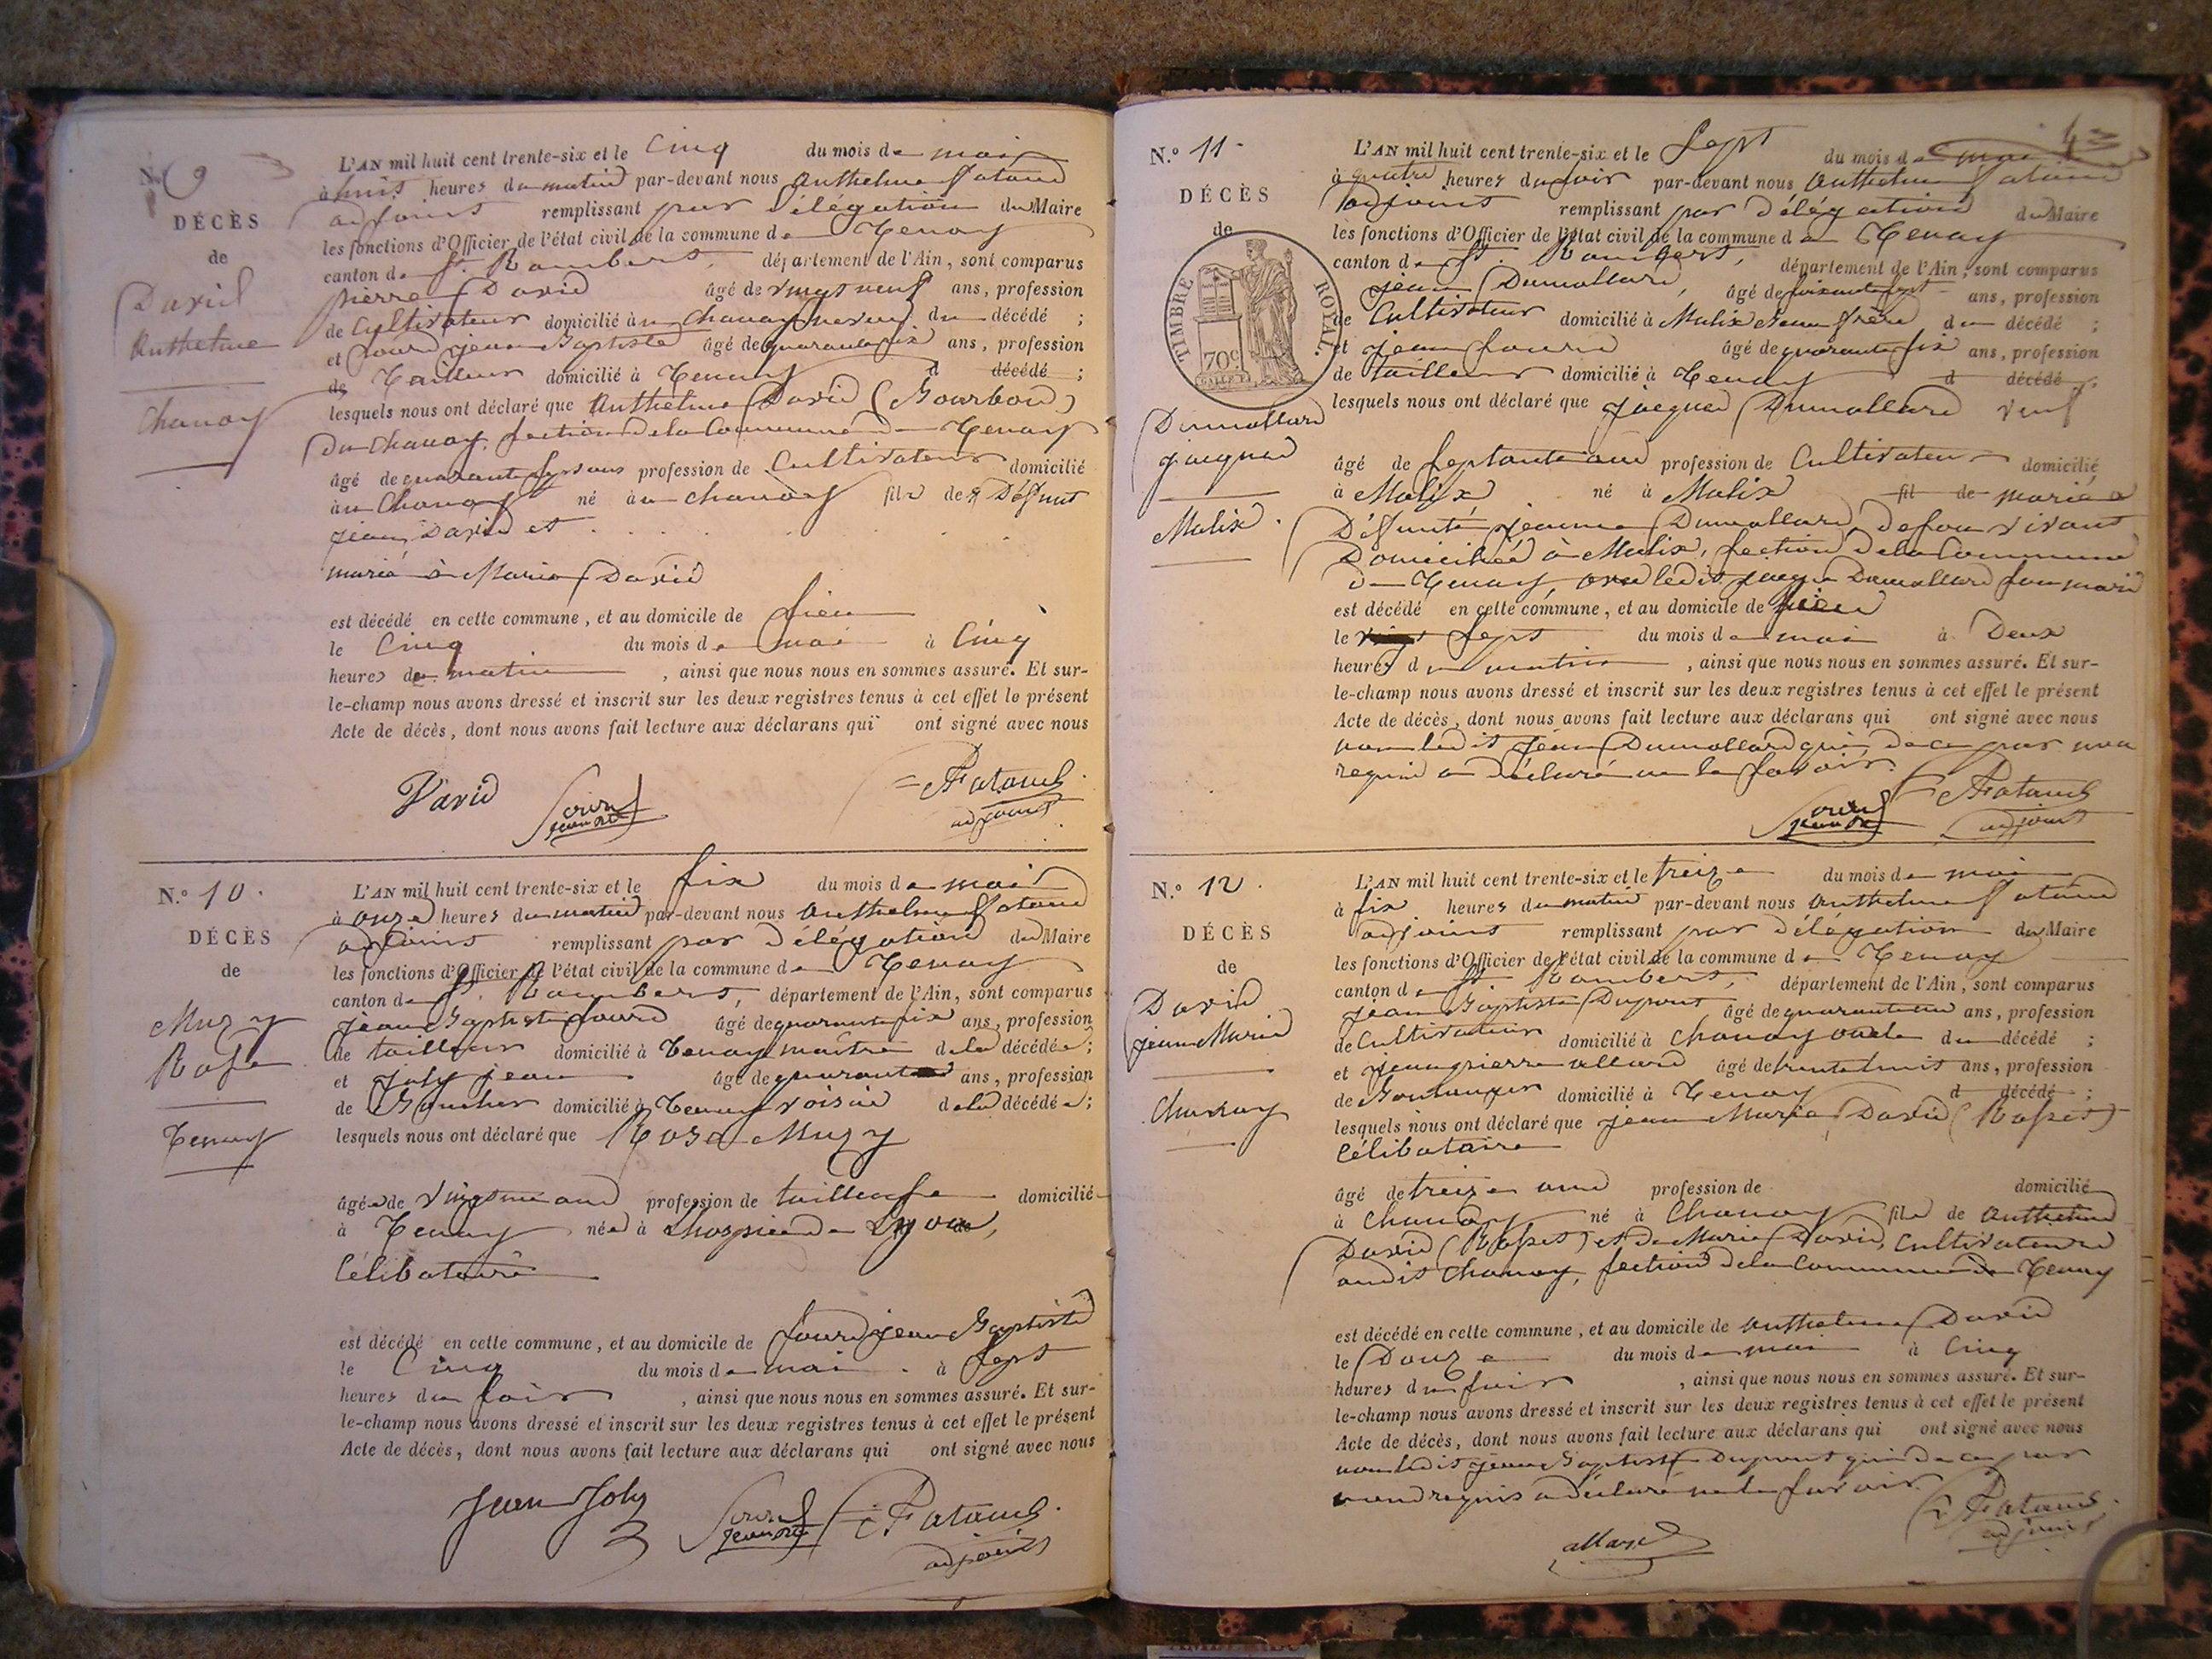 N.º 9
DÉCÈS
de
David
Anthelme
Chanay
L'AN mil huit cent trente-six et le Cinq du mois de mai
à huit heures du matin par-devant nous Anthelme
adjoint remplissant par délégation du Maire
les fonctions d'Officier de l'état civil de la commune de Tenay
canton de St. Rambert, département de l'Ain, sont comparus
pierre David âgé de vingt neuf ans, profession
de Cultivateur domicilié au Chanay neveu du décédé ;
et jean Baptiste âgé de quarante six ans, profession
de Tailleur domicilié à Tenay d décédé ;
lesquels nous ont déclaré que Anthelme David (Bourbon)
du Chanay, section de la Commune de Tenay
âgé de quarante sept ans profession de Cultivateur domicilié
au Chanay né au chanay fils de Défunt
jean David et
marié à Marie David
est décédé en cette commune, et au domicile de sien
le Cinq du mois de mai à Cinq
heures du matin, ainsi que nous nous en sommes assuré. Et sur-
le-champ nous avons dressé et inscrit sur les deux registres tenus à cet effet le présent
Acte de décès, dont nous avons fait lecture aux déclarans qui ont signé avec nous
David
adjoint
N.º 10.
DÉCÈS
de
Muzy
Rose
Tenay
L'AN mil huit cent trente-six et le six du mois de mai
à onze heures du matin par-devant nous Anthelme
adjoint remplissant par délégation du Maire
les fonctions d'Officier de l'état civil de la commune de Tenay
canton de St. Rambert, département de l'Ain, sont comparus
jean Baptiste âgé de quarante six ans, profession
de tailleur domicilié à Tenay maître de la décédée ;
et Joly jean âgé de quarante ans, profession
de Boucher domicilié à Tenay voisin de la décédée ;
lesquels nous ont déclaré que Rose Muzy
âgée de vingt un ans profession de tailleuse domicilié
à Tenay née à Lhospice de Lyon,
Célibataire
est décédé en cette commune, et au domicile de jean Baptiste
le Cinq du mois de mai à sept
heures du soir, ainsi que nous nous en sommes assuré. Et sur-
le-champ nous avons dressé et inscrit sur les deux registres tenus à cet effet le présent
Acte de décès, dont nous avons fait lecture aux déclarans qui ont signé avec nous
Jean Joly
adjoint
43
N.º 11
DÉCÈS
de
TIMBRE ROYAL.
70c.
Dumollard
jacques
Malix
L'AN mil huit cent trente-six et le Sept du mois de mai
à quatre heures du soir par-devant nous Anthelme
adjoint remplissant par délégation du Maire
les fonctions d'Officier de l'état civil de la commune de Tenay
canton de St. Rambert, département de l'Ain, sont comparus
jean Dumollard, âgé de ans, profession
de Cultivateur domicilié à Malix frère du décédé ;
et jean âgé de quarante six ans, profession
de tailleur domicilié à Tenay d décédé ;
lesquels nous ont déclaré que jacques Dumollard veuf
âgé de septante ans profession de Cultivateur domicilié
à Malix né à Malix fil de marié à
Défunte jeanne Dumollard, de son vivant
Domiciliée à Malix, section de la Commune
de Tenay, avec ledit jacques Dumollard son mari
est décédé en cette commune, et au domicile de sien
le sept du mois de mai à Deux
heures du matin, ainsi que nous nous en sommes assuré. Et sur-
le-champ nous avons dressé et inscrit sur les deux registres tenus à cet effet le présent
Acte de décès, dont nous avons fait lecture aux déclarans qui ont signé avec nous
non ledit jean Dumollard qui, de ce par nous
requis a déclaré ne le savoir.
adjoint
N.º 12.
DÉCÈS
de
David
jean Marie
Chanay
L'AN mil huit cent trente-six et le treize du mois de mai
à six heures du matin par-devant nous Anthelme
adjoint remplissant par délégation du Maire
les fonctions d'Officier de l'état civil de la commune de Tenay
canton de St. Rambert, département de l'Ain, sont comparus
jean Baptiste Dupont âgé de quarante ans, profession
de Cultivateur domicilié à Chanay oncle du décédé ;
et jean pierre allard âgé de trente huit ans, profession
de Boulanger domicilié à Tenay d décédé ;
lesquels nous ont déclaré que jean Marie David (Rosset)
Célibataire
âgé de treize ans profession de domicilié
à Chanay né à Chanay fils de Anthelme
David (Rosset) et de Marie David, Cultivateurs
audit Chanay, section de la Commune de Tenay
est décédé en cette commune, et au domicile de Anthelme David
le Douze du mois de mai à Cinq
heures du soir, ainsi que nous nous en sommes assuré. Et sur-
le-champ nous avons dressé et inscrit sur les deux registres tenus à cet effet le présent
Acte de décès, dont nous avons fait lecture aux déclarans qui ont signé avec nous
non ledit jean Baptiste Dupont qui de ce par
nous requis a déclaré ne le savoir.
allard
adjoint